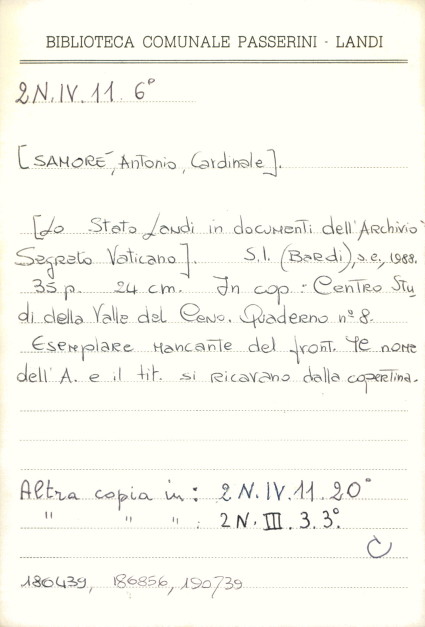 BIBLIOTECA COMUNALE PASSERINI - LANDI
2 N. IV. 11. 6°
[SAMORÉ, Antonio, Cardinale].
[Lo Stato Landi in documenti dell'Archivio
Segreto Vaticano]. S.l. (Bardi), s.e., 1988.
35 p. 24 cm. In cop.: Centro Stu
di della Valle del Ceno. Quaderno n° 8.
Esemplare mancante del front. Il nome
dell'A. e il tit. si ricavano dalla copertina.
Altra copia in: 2 N. IV. 11. 20°
" " " : 2 N. III. 3. 3°.
C
180439, 186856, 190739